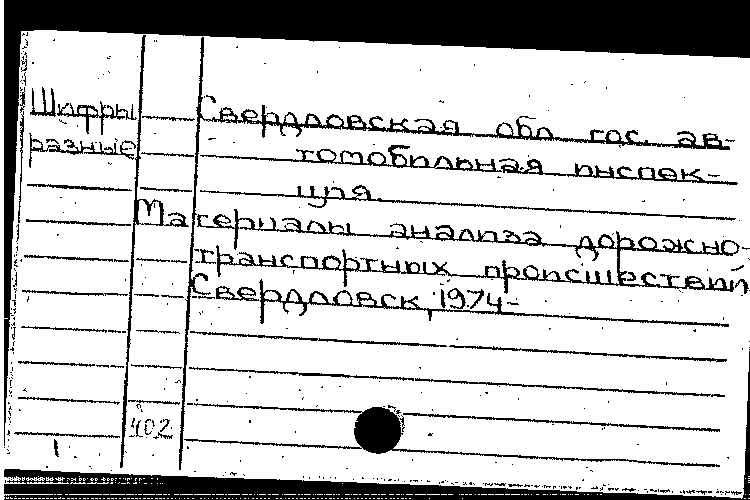 Шифры разные
Свердловская обл. гос. ав-
томобильная инспек-
ция.
Материалы анализа дорожно-
транспортных происшествий
Свердловск, 1974-
402